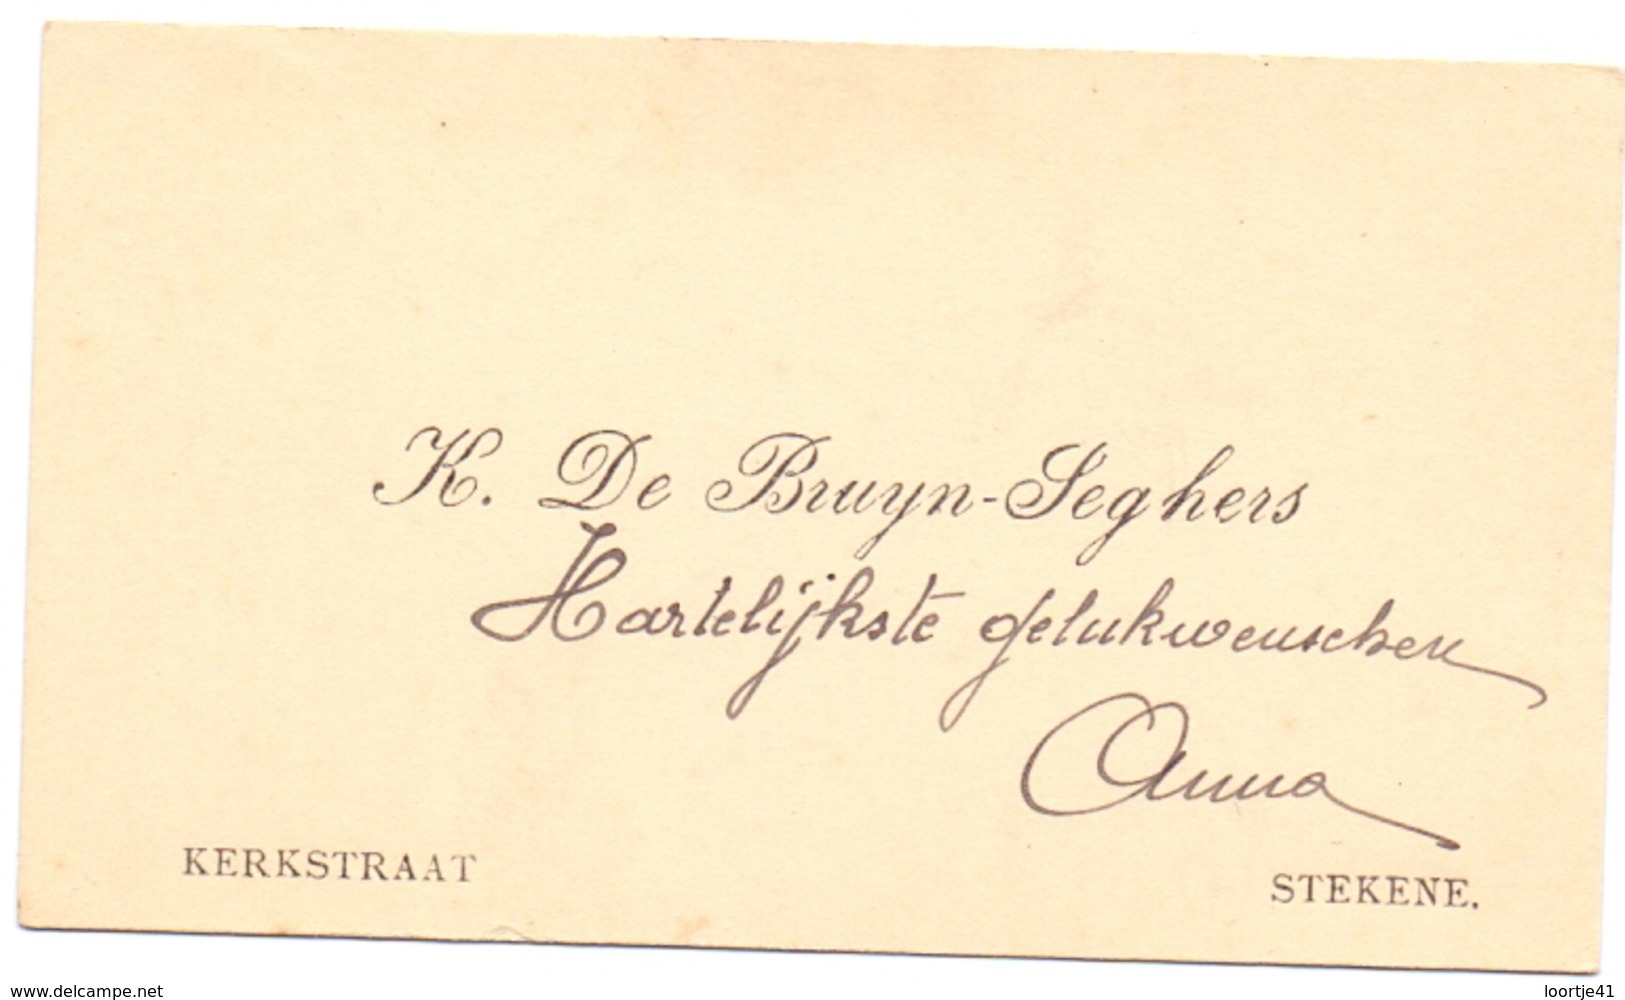 K. De Bruyn-Seghers
Hartelijkste gelukwenschen
Anna
KERKSTRAAT STEKENE.
www.delcampe.net loortje41